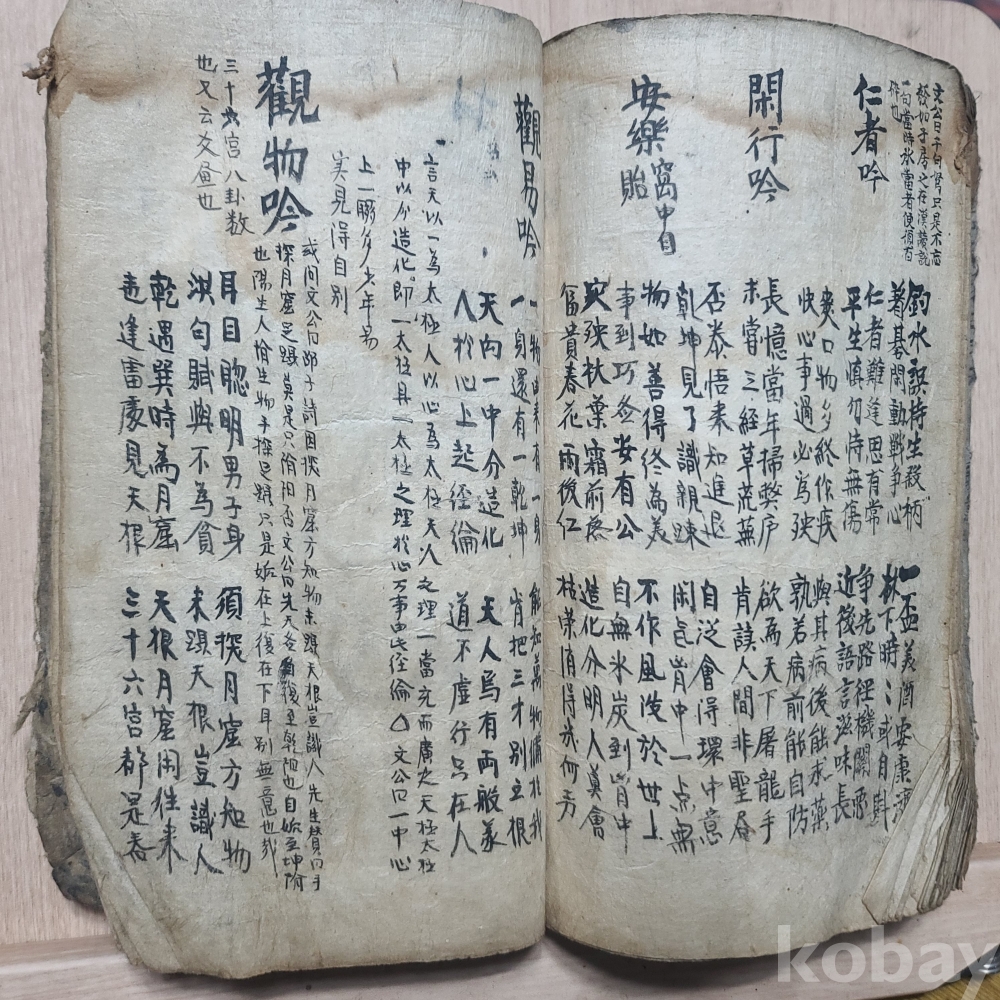 釣水誤持生殺柄 一盃美酒安康濟
著碁閑動戰爭心 林下時〻或自斟
仁者吟
仁者難逢思有常 爭先路徑機關惡
平生慎勿恃無傷 近後語言滋味長
爽口物多終作疾 與其病後能求藥
快心事過必為殃 孰若病前能自防
閑行吟
長憶當年掃獘庐 欲為天下屠龍手
未嘗三經草荒蕪 肯讀人間非聖
否泰悟来知進退 自從會得環中意
乾坤見了識親踈 闲氣胷中一点無
安樂窩中自貽
物如善得終為美 不作風波於世上
事到巧啚安有公 自無氷炭到胷中
灾殃秋葉霜前 造化分明人莫會
富貴春花雨後仁 枯荣消得何
觀易吟
一物由来有一身 能知萬物備於我
一身還有一乾坤 肯把三才別立根
天向一中分造化 天人焉有両般義
人於心上起經綸 道不虛行只在人
言天以一為太極人以心為太極天人之理一當充而廣之天極太極
中以分造化即一太極具一太極之理於心万事由此经倫△文公曰一中心
上一聯多少年易
実見得自別
觀物吟
三十六宮八卦数
也又云爻畫也
或问文公曰邵子詩曰探月窟方知物未躡天根豈識人先生賛曰手
探月窟足躡莫是只陰陽否文公曰先天啚自復至乾陽也自姤至坤陰
也陽生人陰生物手探足躡只是姤在上復在下耳別無意也哉
耳目聦明男子身 須探月窟方知物
洪匀賦與不為貧 未躡天根豈識人
乾遇巽時為月窟 天根月窟闲往来
逢雷處見天根 三十六宮都是春
kobay